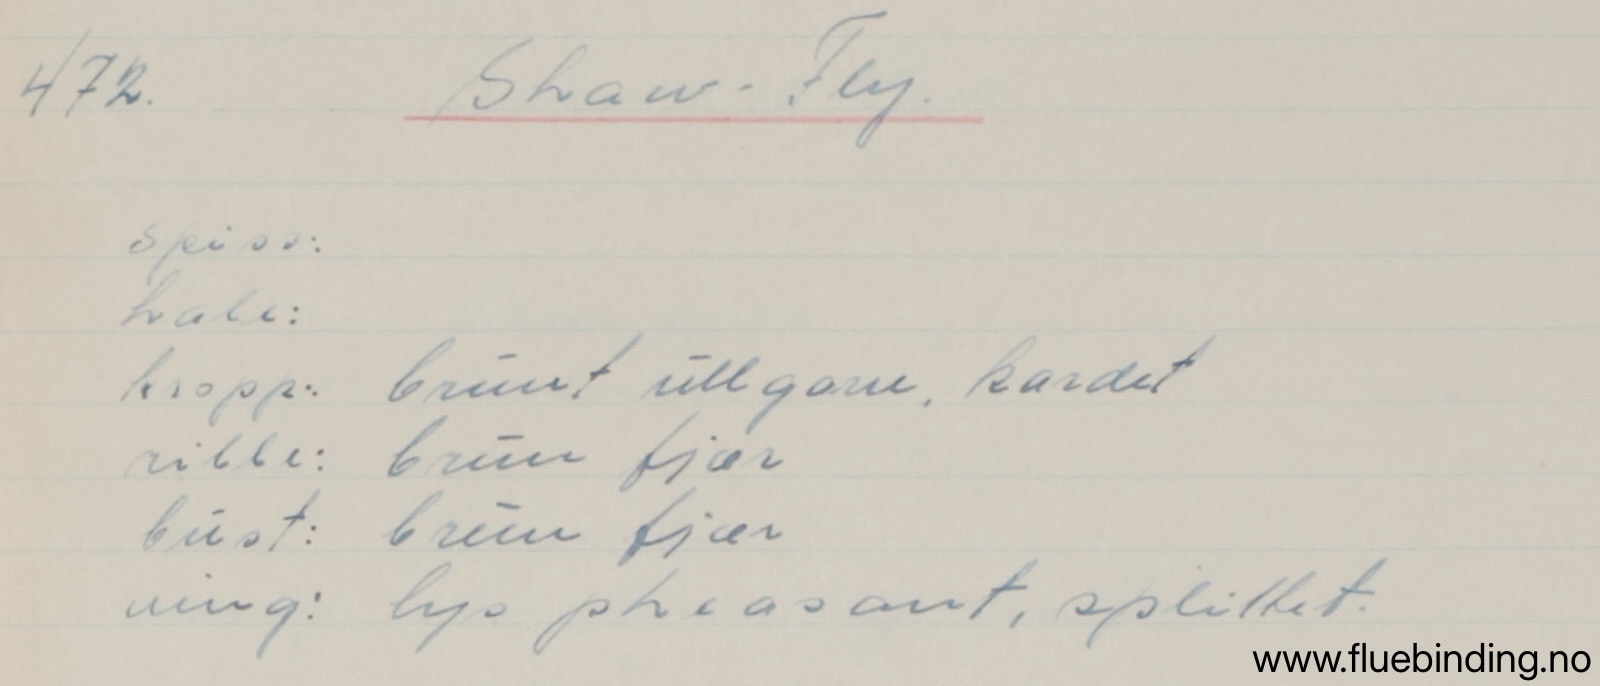 472. Shaw-Fly.
spiss:
hale:
kropp: brunt ullgarn, kardet
ribbe: brun fjær
bust: brun fjær
ving: lys pheasant, splittet.
www.fluebinding.no